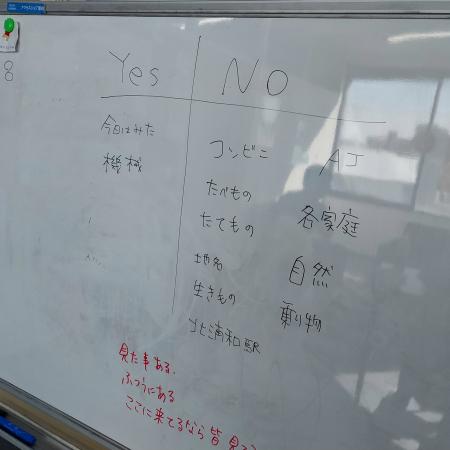 8
Yes
NO
今日はみた
機械
コンビニ
AJ
たべもの
たてもの
各家庭
地名
自然
生きもの
乗り物
北浦和駅
見た事ある、
ふつうにある
ここに来てるなら皆見て